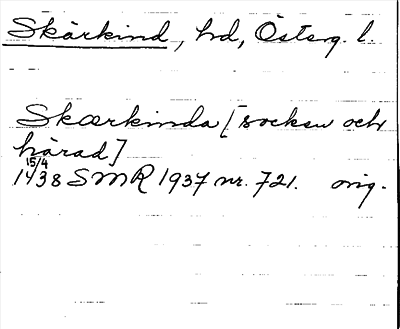 Skärkind, hd, Österg. l.
Skærkinda [socken och
härad]
15/4
1438 SMR 1937 nr. 721. orig.